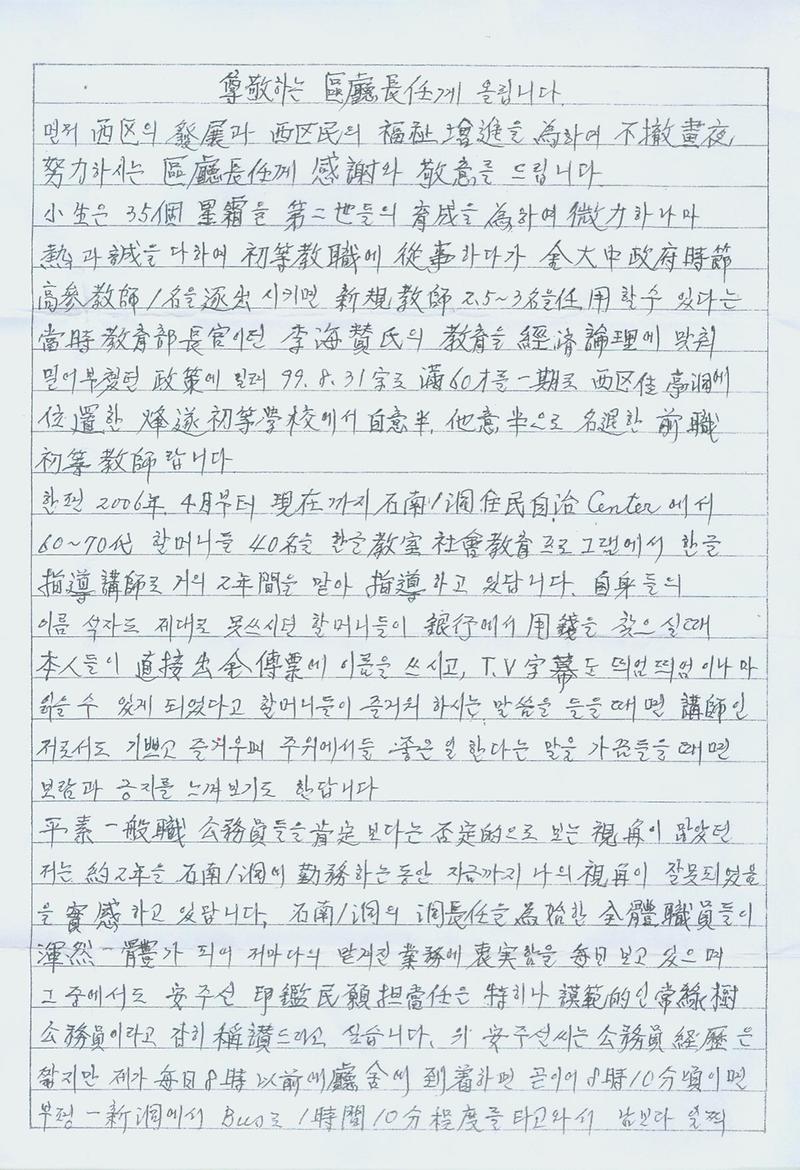 尊敬하는 區廳長任께 올립니다.
먼저 西区의 發展과 西区民의 福祉增進을 為하여 不撤晝夜
努力하시는 區廳長任께 感謝와 敬意를 드립니다.
小生은 35個 星霜을 第二世들의 育成을 為하여 微力하나마
熱과 誠을 다하여 初等教職에 從事하다가 金大中政府時節
高參教師 1名을 逐出시키면 新規教師 2.5~3名을 任用할 수 있다는
當時教育部長官이던 李海贊氏의 教育을 經済論理에 맞춰
밀어부쳤던 政策에 밀려 99.8.31字로 滿60才를 一期로 西区佳亭洞에
位置한 烽遂初等学校에서 自意半, 他意半으로 名退한 前職
初等教師랍니다
한편 2006年 4月부터 現在까지 石南1洞住民自治Center에서
60~70代 할머니들 40名을 한글教室 社會教育프로그램에서 한글
指導講師로 거의 2年間을 맡아 指導하고 있답니다. 自身들의
이름 석자도 제대로 못쓰시던 할머니들이 銀行에서 用錢을 찾으실때
本人들이 直接出金傳票에 이름을 쓰시고, T.V字幕도 띄엄띄엄이나마
읽을 수 있게 되었다고 할머니들이 즐거워 하시는 말씀을 들을때면 講師인
저로서도 기쁘고 즐거우며 주위에서들 좋은일 한다는 말을 가끔들을때면
보람과 긍지를 느껴보기도 한답니다
平素 一般職 公務員들을 肯定보다는 否定的으로 보는 視角이 많았던
저는 約2年을 石南1洞에 勤務하는동안 지금까지 나의 視角이 잘못되었음
을 實感하고 있답니다. 石南1洞의 洞長任을 為始한 全體職員들이
渾然一體가 되어 저마다의 맡겨진 業務에 衷実함을 每日 보고 있으며
그 중에서도 安主선 印鑑民願担當任은 特히나 謨範的인 常綠樹
公務員이라고 감히 稱讚드리고 싶습니다. 위 安주선씨는 公務員 経歷은
짧지만 제가 每日 8時 以前에 廳舍에 到着하면 곧이어 8時10分頃이면
부평 一新洞에서 Bus로 1時間10分 程度를 타고와서 남보다 일찍